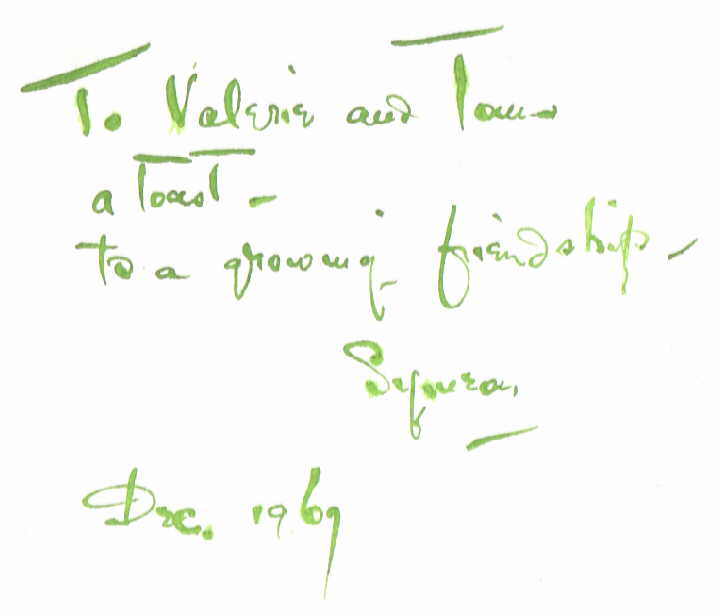 To Valerie and Tom
a Toast -
to a growing friendship -
Dec. 1969